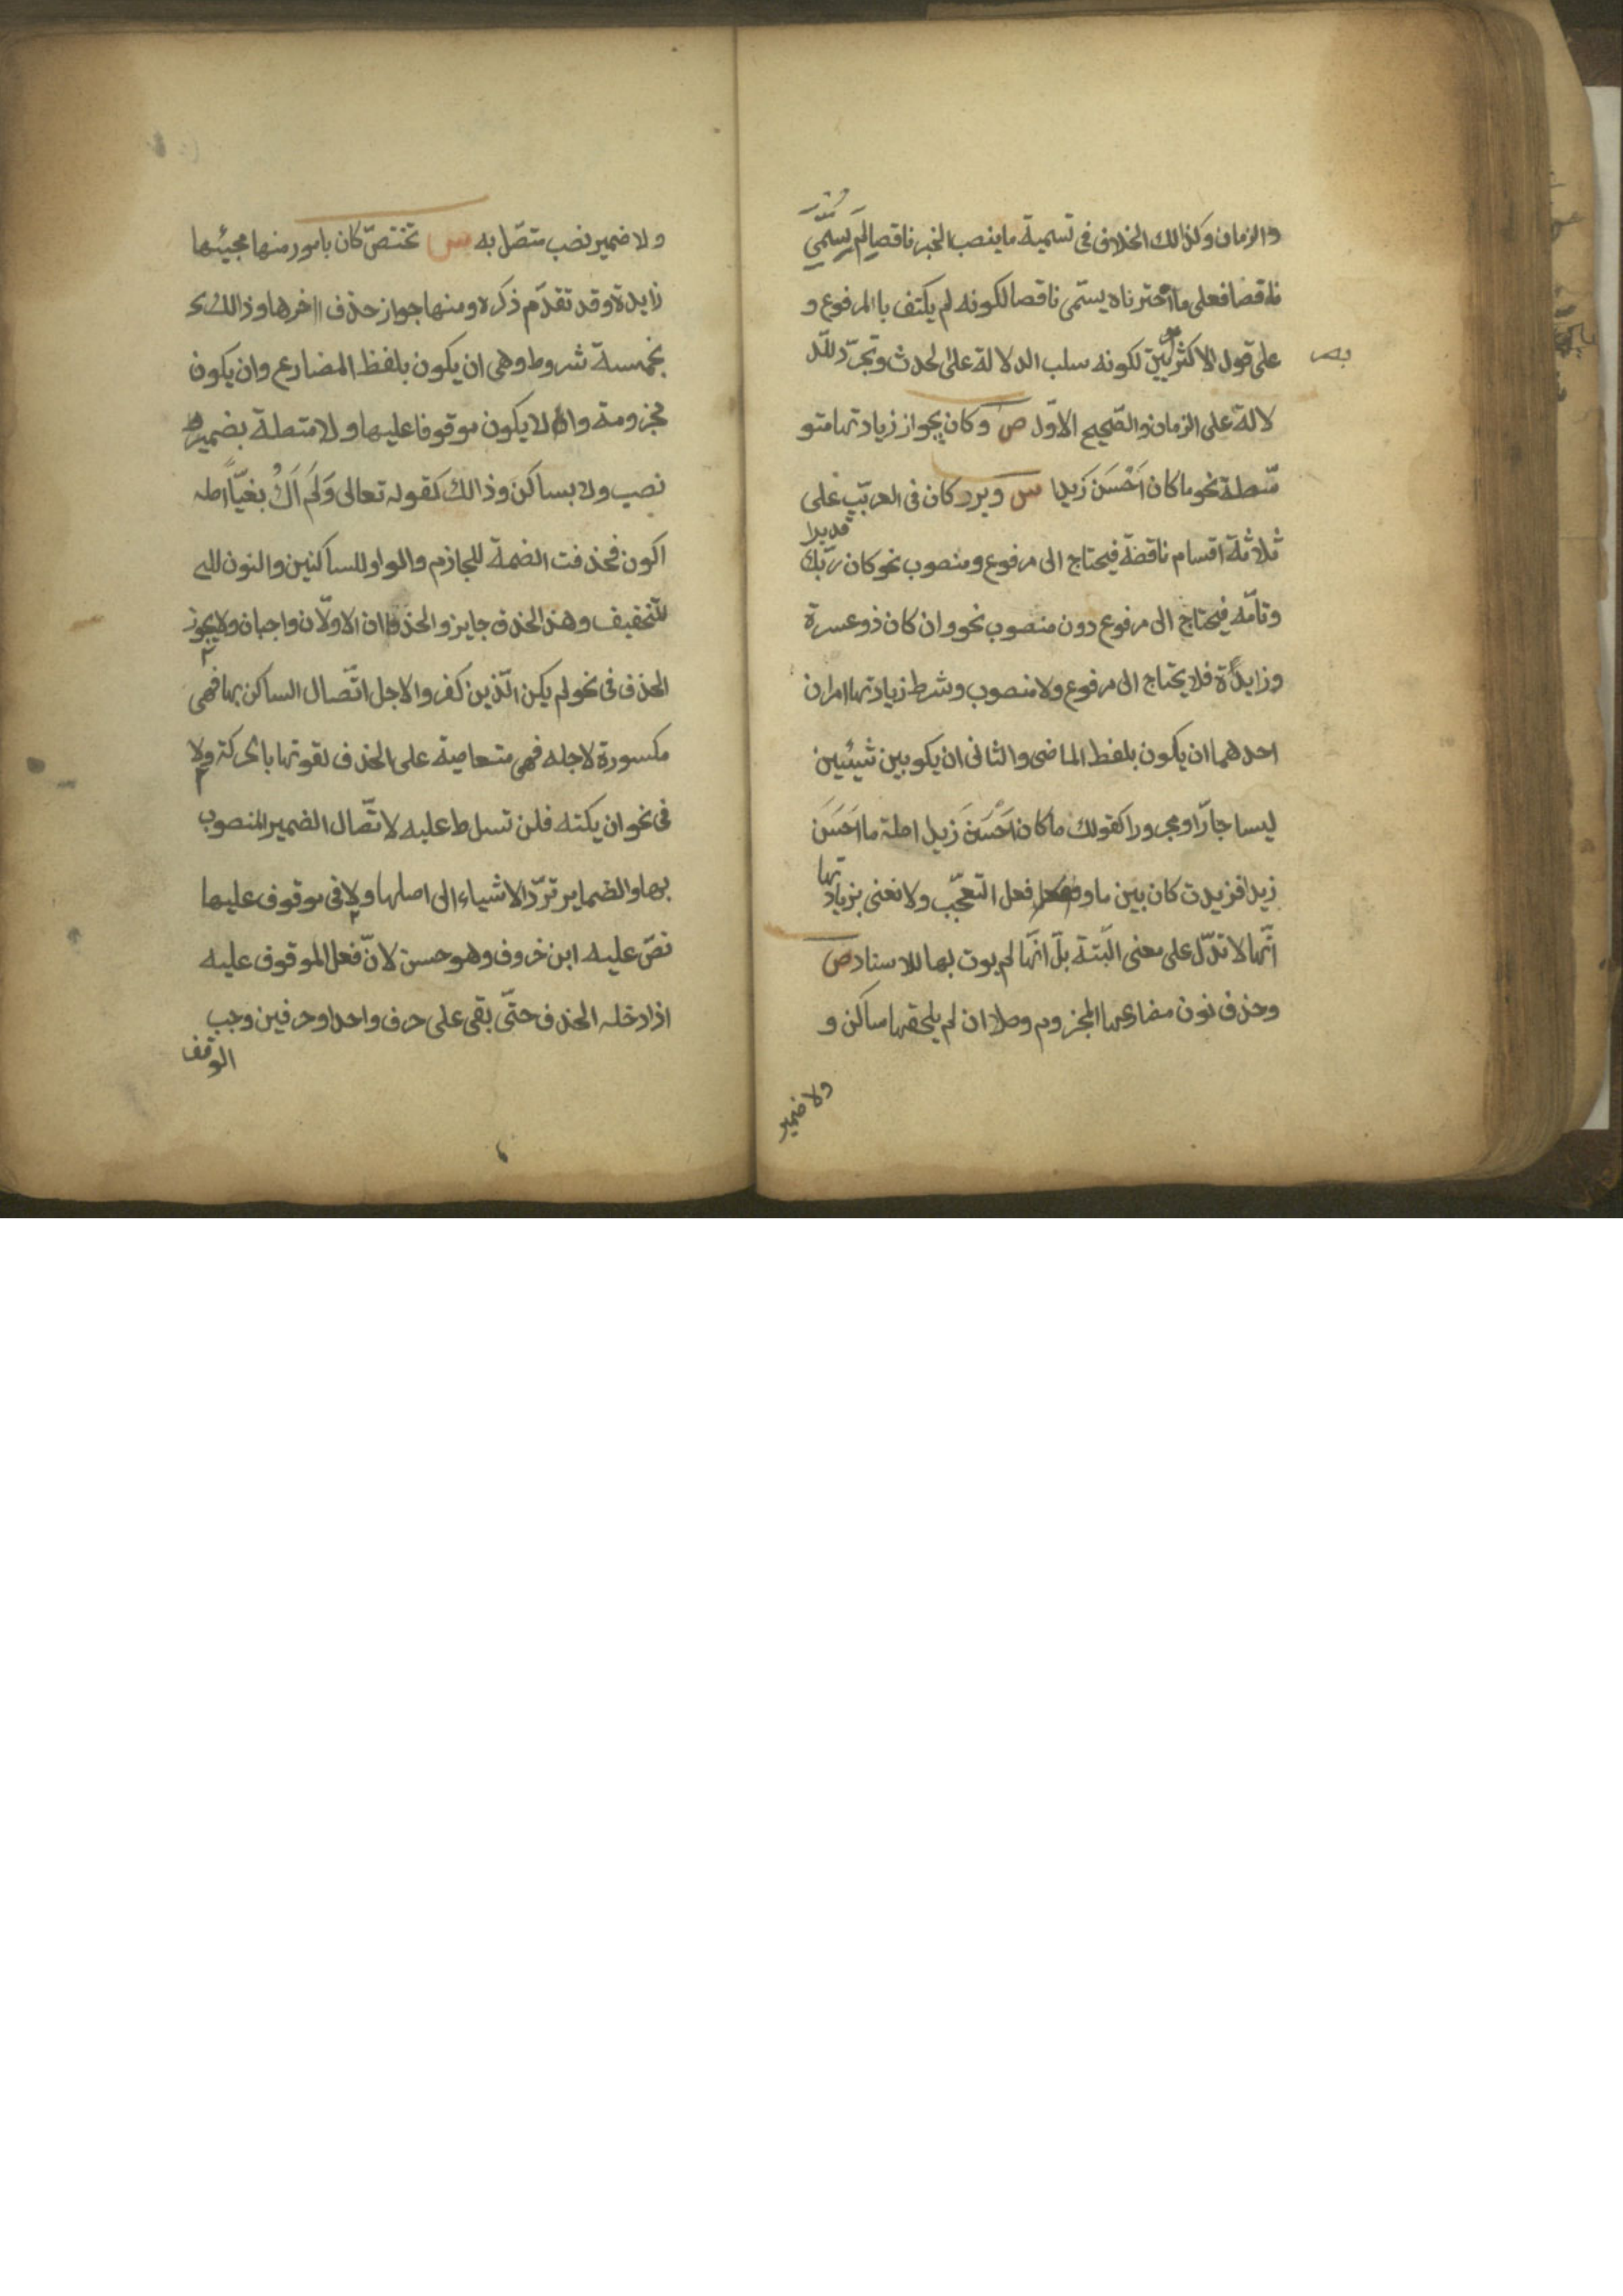 والزمان وكذالك الخلاف فى تسمية ما ينصب الخبر ناقصا لم يسمّي
ناقصا فعلى ما اخترناه يسمّى ناقصا لكونه لم يكتف با المرفوع و
على قول الاكثرين لكونه سلب الدلالة على الحدث وتجرّد للّد
لالة على الزمان والصّحيح الاوّل ص وكان بجواز زيادتها متو
سّطة نحو ما كان اَحْسَنَ زَيدا س ويرد كان فى العربيّة على
ثلاثة اقسام ناقصة فيحتاج الى مرفوع ومنصوب نحو كان ربّك
قديرا
وتامّه فيحتاج الى مرفوع دون منصوب نحو وان كان ذو عسرة
وزايدة فلا يحتاج الى مرفوع ولا منصوب وشرط زيادتها امران
احدهما ان يكون بلفظ الماضى والثانى ان يكو بين شيئين
ليسا جارّا ومجرورا كقولك ما كان اَحْسَنَ زيدا اصله ما اَحْسَنَ
زيدا فزيدت كان بين ما وفعل فعل التعجّب ولا نعنى بزيادتها
انّها لا تدّل على معنى البتّة بل انّها لم يوت بها للاسناد ص
وحذف نون مضارعها المجزوم وصلا ان لم يلحقها ساكن و
ولا ضمير
ولا ضمير نصب متصّل به س تختصّ كان بامور منها مجيئها
زايدة وقد تقدّم ذكره ومنها جواز حذف اخرها وذالك
بخمسة شروط وهى ان يكون بلفظ المضارع وان يكون
مجزومة وان لا يكون موقوفا عليها ولا متصلة بضمير
نصب ولا بساكن وذالك كقوله تعالى وَلَم اَكُ بغيّا اصله
اكون فحذفت الضمة للجازم والواو للساكنين والنون
للتخفيف وهذا الحذف جايز والحذفان الاولّان واجبان ولا يجوز
الحذف فى نحو لم يكن الّذين كفروا لاجل اتّصال الساكن بها فهى
مكسورة لاجله فهى متعاصية على الحذف لقوتها با الحركة ولا
فى نحو ان يكنه فلن تسلط عليه لاتّصال الضمير المنصوب
بها والضماير تردّ الاشياء الى اصلها ولا فى موقوف عليها
نصّ عليه ابن خروف وهو حسن لانّ فعل الموقوف عليه
اذا دخله الحذف حتّى بقى على حرف واحد او حرفين وجب
الوقف